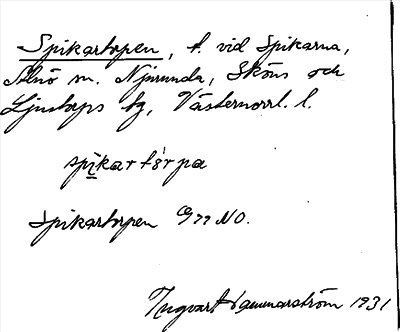 Spikartorpen, t. vid Spikarna,
Alnö sn. Njurunda, Sköns och
Ljustorps tg, Västernorrl. l.
spikar tòr pa
Spikartorpen G 77 NO.
Ingvart Hammarström 1931